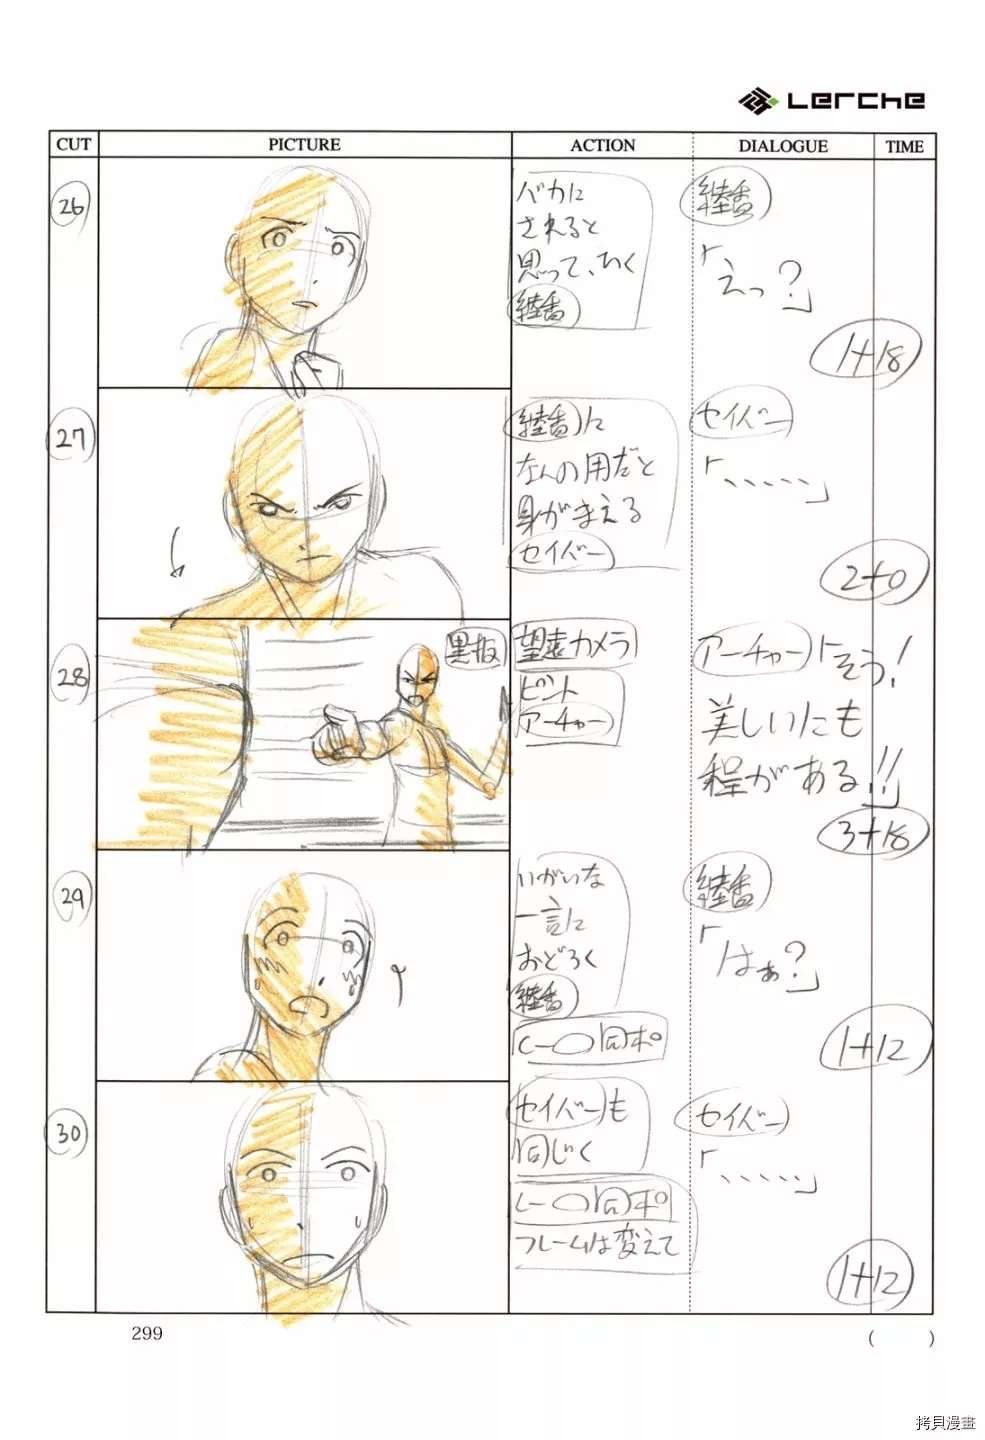 Lerche
CUT
PICTURE
ACTION
DIALOGUE
TIME
26
バカに
されると
思って、ひく
綾香
綾香
「えっ?」
1+18
27
綾香に
なんの用だと
身がまえる
セイバー
セイバー
「、、、、、」
2+0
28
黒板
望遠カメラ
ピント
アーチャー
アーチャー「そう!
美しいにも
程がある!!」
3+18
29
いがいな
一言に
おどろく
綾香
C-〇同ポ
綾香
「はぁ?」
1+12
30
セイバーも
同じく
C-〇同ポ
フレームは変えて
セイバー
「、、、、、」
1+12
299
( )
拷貝漫畫